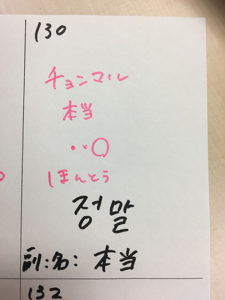 130
チョンマル
本当
・・○
ほんとう
정말
副:名: 本当
132